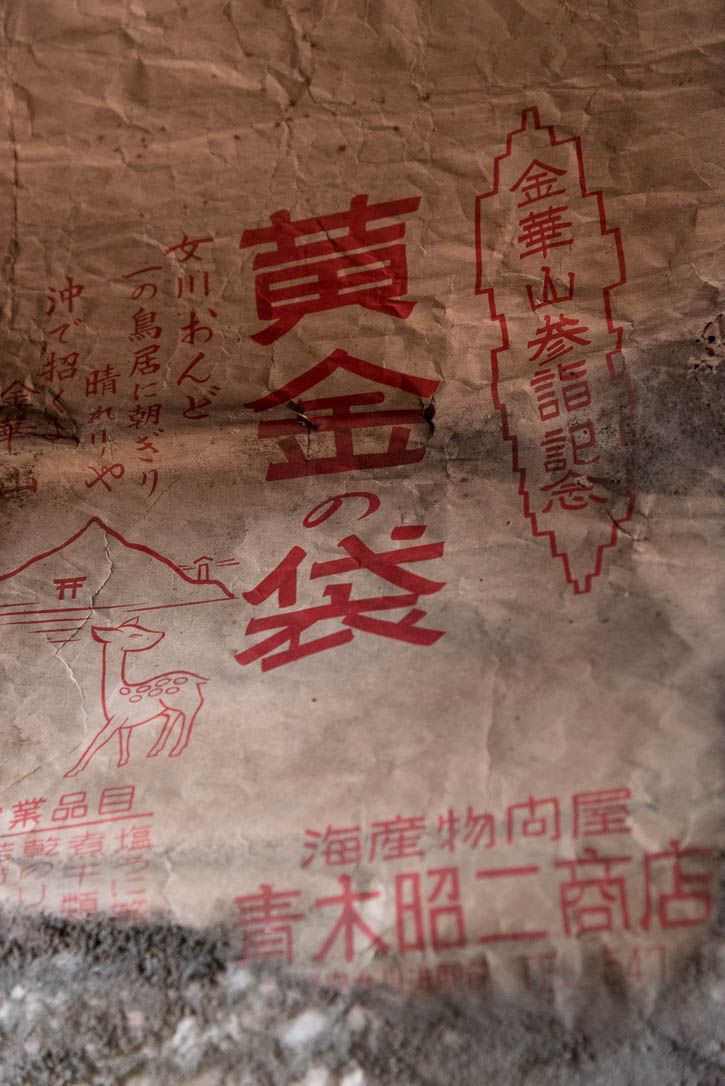 金華山参詣記念
黄金の袋
女川、おんど
一の鳥居に朝ぎり
晴れりや
沖で招くよ
金華山
業品目
塩うに
煮干類
乾のり
海産物問屋
青木昭二商店